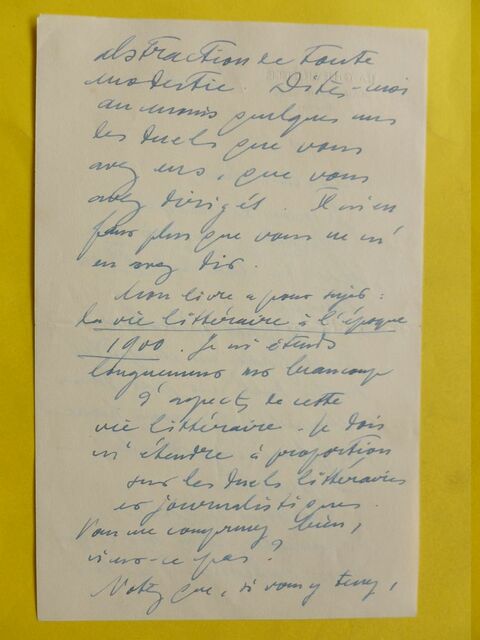 abstraction de toute
modestie. Dites-moi
au moins quelques uns
des duels que vous
avez eus, que vous
avez dirigés. Il m'en
faut plus que vous ne m'
en avez dit.
Mon livre a pour sujet :
La vie littéraire à l'époque
1900. Je m'étends
longuement sur beaucoup
d'aspects de cette
vie littéraire. Je dois
m'étendre à proportion
sur les duels littéraires
et journalistiques.
Vous me comprenez bien,
n'est-ce pas ?
Notez que, si vous y tenez,